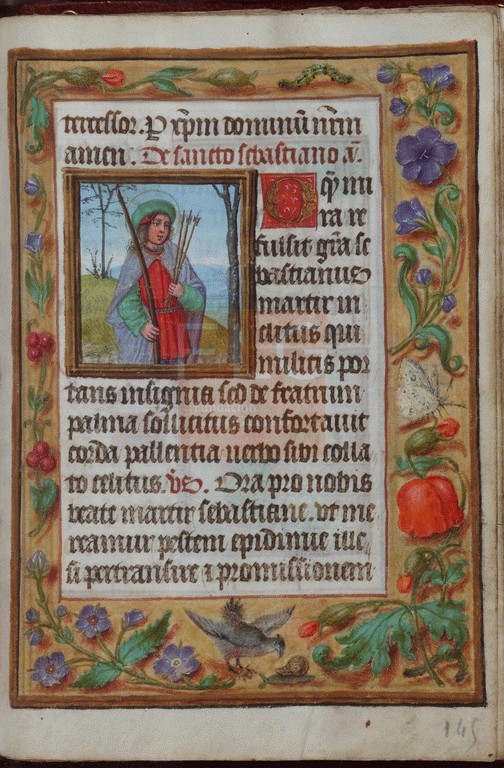 tercessor. P xp̄m dominū nr̄m
amen. De sancto sebastiano a͞.
O q̄ mi
ra re
fulsit gr̄a se
bastianus
martir in
clitus qui
militis por
tans insignia sed de fratrum
palma sollicitus confortauit
corda pallentia uerbo sibi colla
to celitus. v̄s. Ora pro nobis
beate martir sebastiane. vt me
reamur pestem epidimie ille
si pertransire ⁊ promissionem
fundación
145